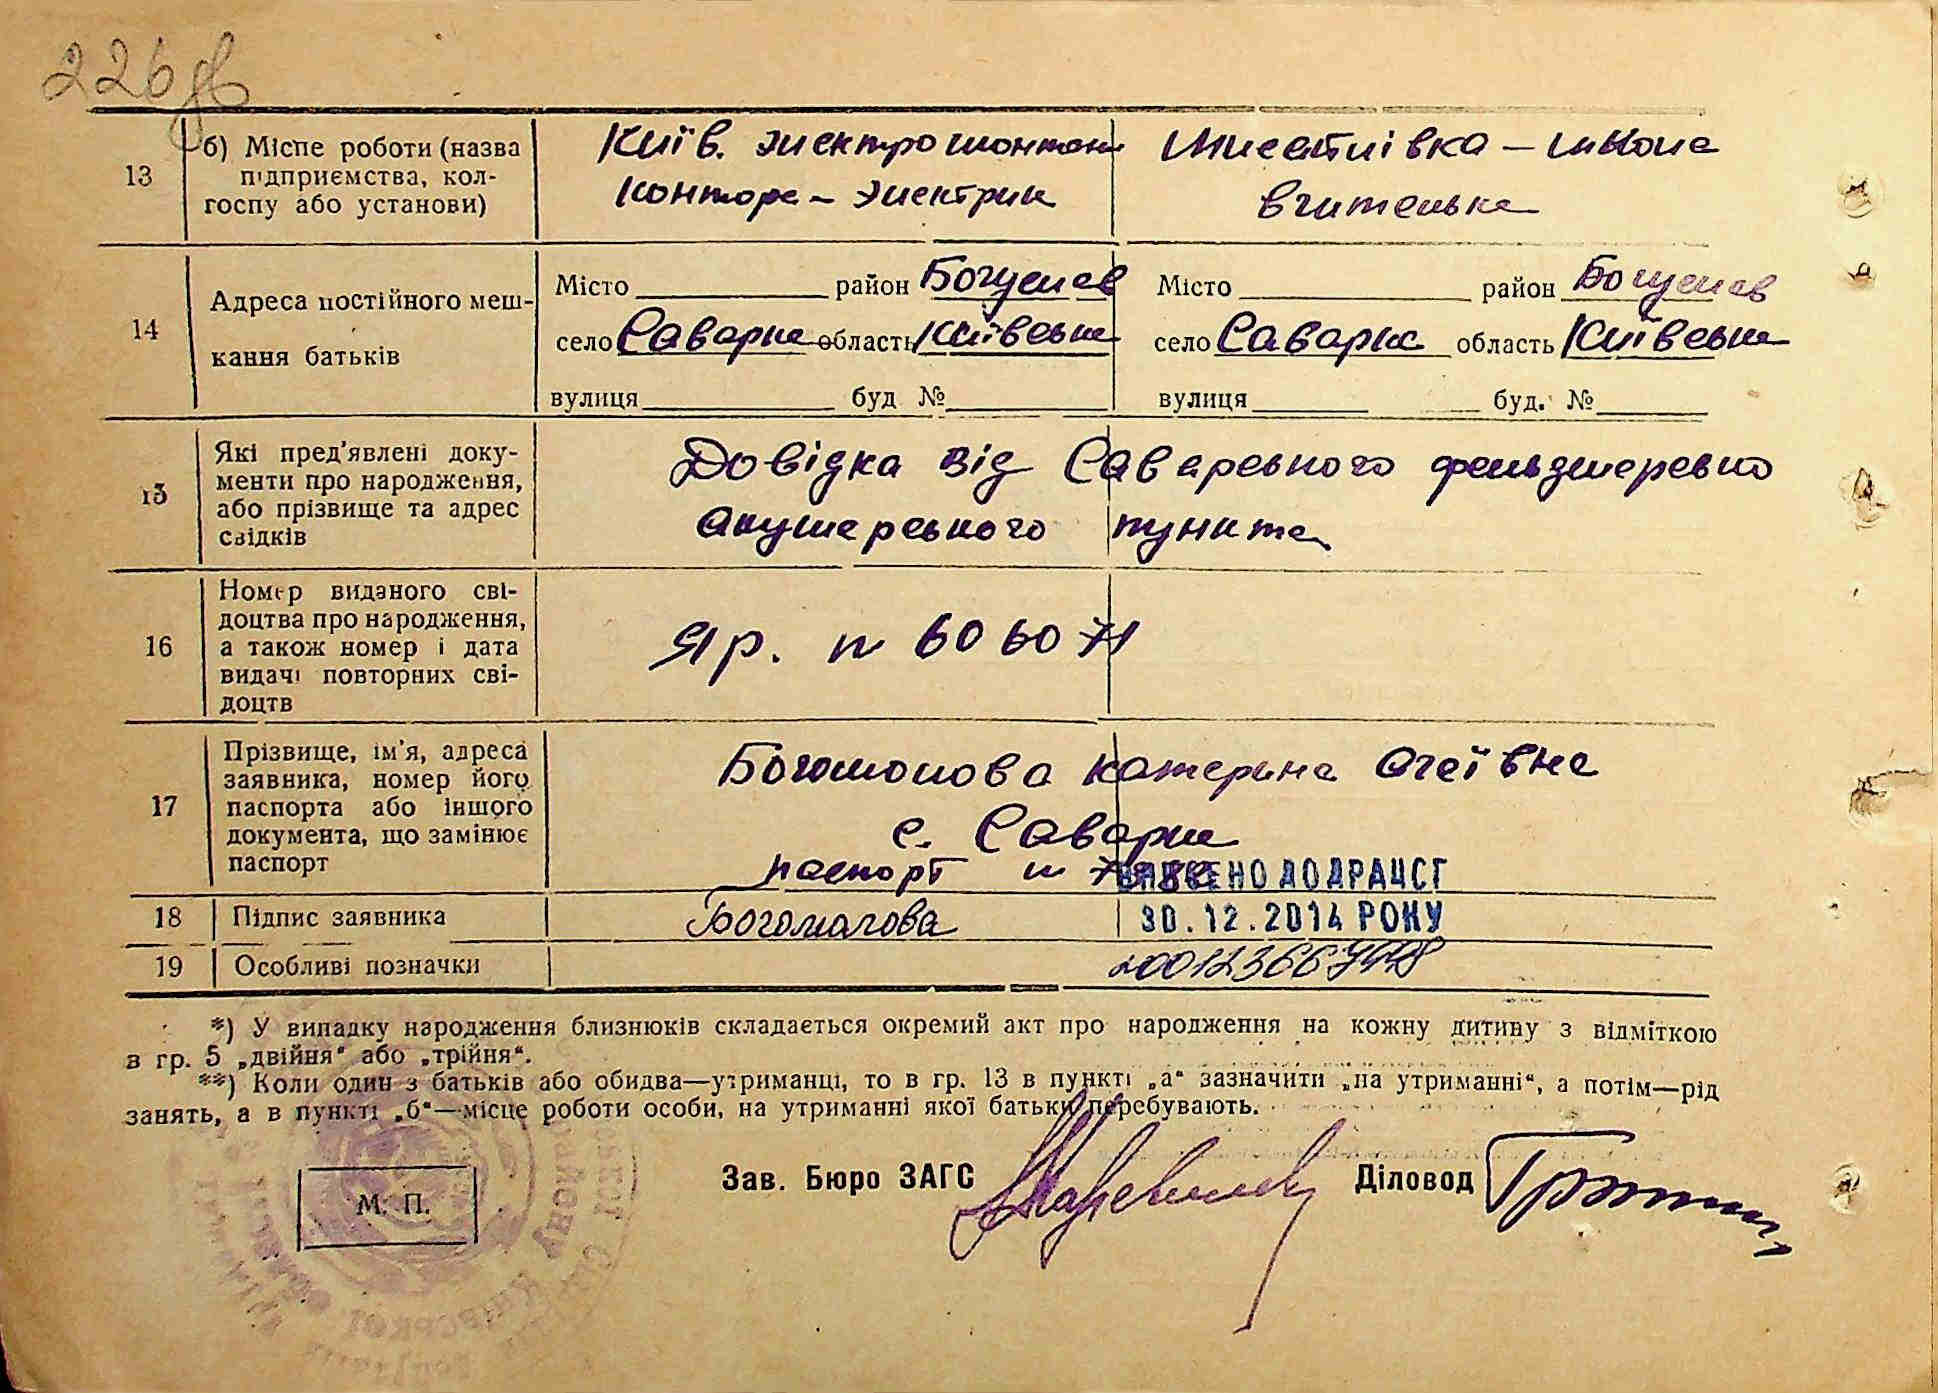 226
13 б) Місце роботи (назва підприємства, колгоспу або установи)
Київ. электромонтаж
контора – электрик
школа
вчителька
14 Адреса постійного мешкання батьків
Місто район Богуслав
село Саварка область Київська
вулиця буд №
Місто район Богуслав
село Саварка область Київська
вулиця буд. №
15 Які пред'явлені документи про народження, або прізвище та адрес свідків
Довідка від Саварського фельдшерсько
акушерського пункта
16 Номер виданого свідоцтва про народження, а також номер і дата видачі повторних свідоцтв
ЯР. № 606071
17 Прізвище, ім'я, адреса заявника, номер його паспорта або іншого документа, що замінює паспорт
Богомолова Катерина Агеївна
с. Саварка
паспорт №
ВНЕСЕНО ДО ДРАЦСГ
18 Підпис заявника
Богомолова
30.12.2014 РОКУ
19 Особливі позначки
*) У випадку народження близнюків складається окремий акт про народження на кожну дитину з відміткою
в гр. 5 „двійня“ або „трійня“.
**) Коли один з батьків або обидва—утриманці, то в гр. 13 в пункті „а“ зазначити „на утриманні“, а потім—рід
занять, а в пункті „б“—місце роботи особи, на утриманні якої батьки перебувають.
Зав. Бюро ЗАГС Діловод
М. П.